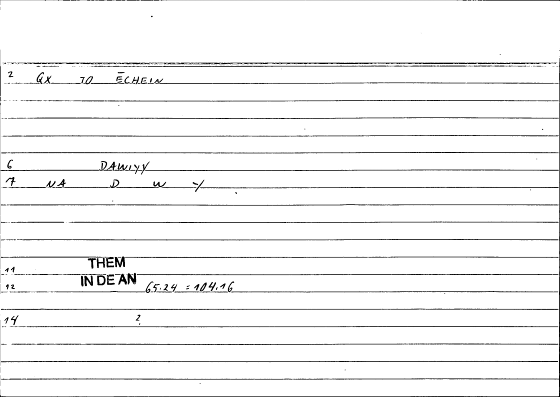 2 GX TO ĒCHEIN
6 DAWIYY
7 NA D W Y
THEM
11
IN DE AN
12 65.24 = 104.16
14 2.